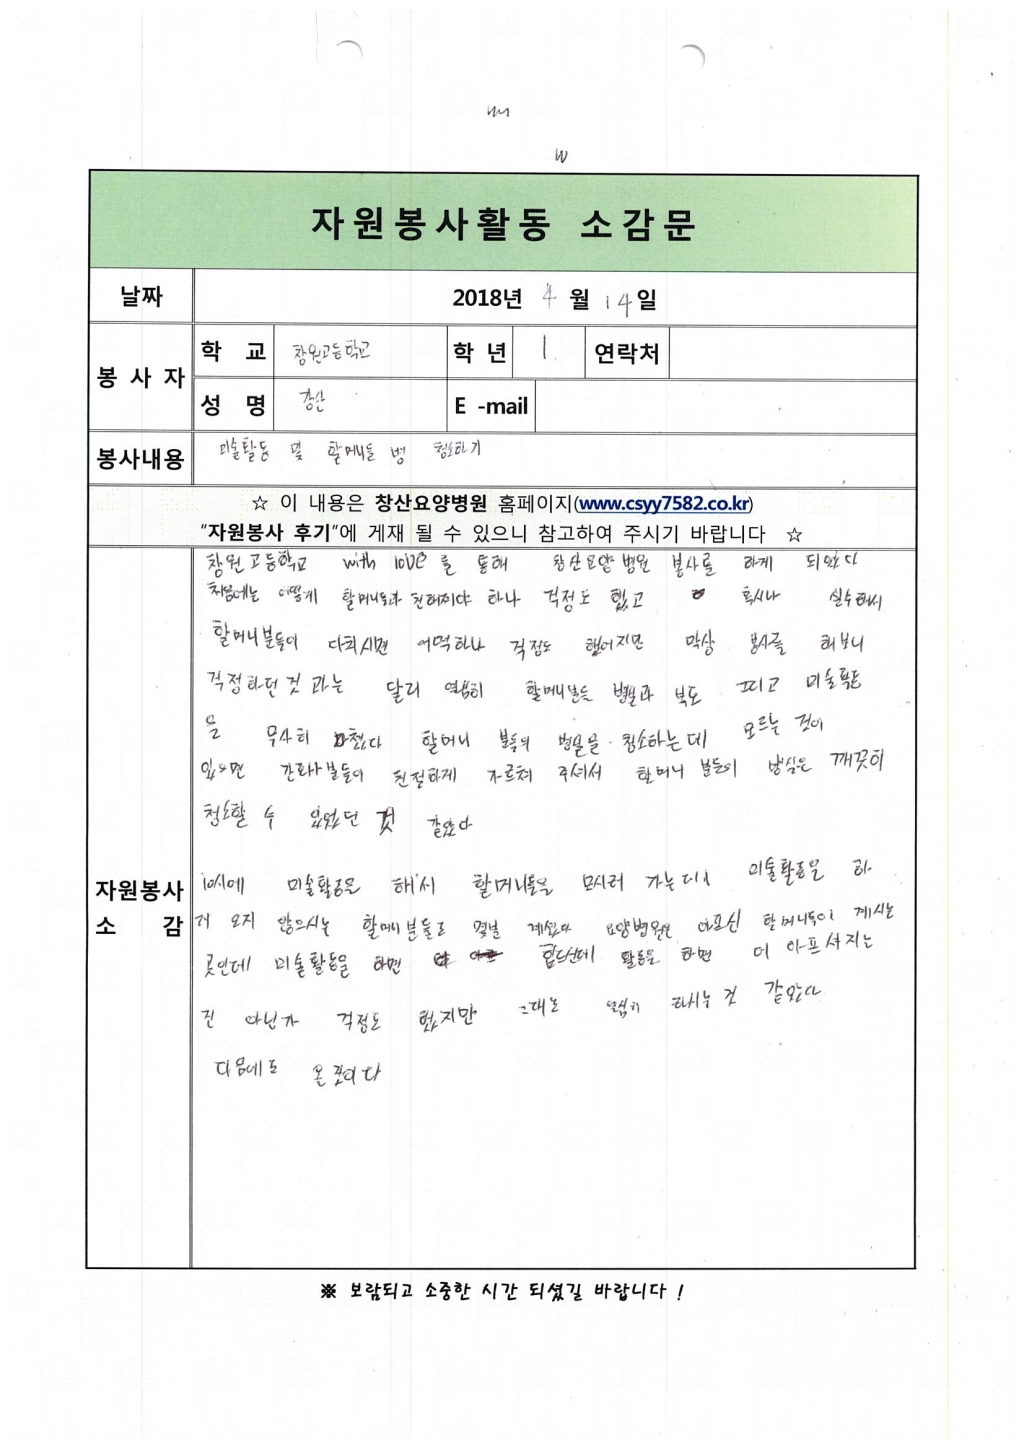 자원봉사활동 소감문
날짜 2018년 4월 14일
봉사자 학 교 창원고등학교 학 년 1 연락처
성 명 강산 E -mail
봉사내용 미술활동 및 할머니들 병 청소하기
☆ 이 내용은 창산요양병원 홈페이지(www.csyy7582.co.kr)
"자원봉사 후기"에 게재 될 수 있으니 참고하여 주시기 바랍니다 ☆
자원봉사
소 감
창원고등학교 with love를 통해 창산요양병원 봉사를 하게 되었다
처음에는 어떻게 할머니들과 친해져야 하나 걱정도 했고 혹시나 실수해서
할머니분들이 다치시면 어떡하나 걱정도 했어지만 막상 봉사를 해보니
걱정하던 것 과는 달리 열심히 할머니분들 병실과 복도 끄리고 미술활동
을 무사히 마쳤다 할머니 분들의 병실을 청소하는데 모르는 것이
있으면 간호사분들이 친절하게 가르쳐 주셔서 할머니 분들의 방식은 깨끗히
청소할 수 있었던 것 같았다
10시에 미술활동을 해서 할머니들을 모시러 가는데 미술활동을 하
러 오지 않으시는 할머니분들도 몇분 계셨다 요양병원은 아프신 할머니들이 계시는
곳인데 미술활동을 하면 힘드신데 활동을 하면 더 아프셔지는
건 아닌가 걱정도 했지만 그래도 열심히 하시는 것 같았다
다음에도 올 것이다
※ 보람되고 소중한 시간 되셨길 바랍니다 !